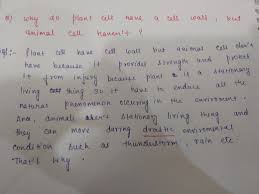 Q) Why do plant cell have a cell wall, but
animal cell haven't ?
Plant cell have cell wall but animal cell don't
have because it provides strength and protect
it from injury because plant is a stationary
living thing so it have to endure all the
natural phenomenon occuring in the enviroment.
And, animals aren't stationary living thing and
they can move during drastic enviromental
condition such as thunderstorm, rain etc.
That's why.